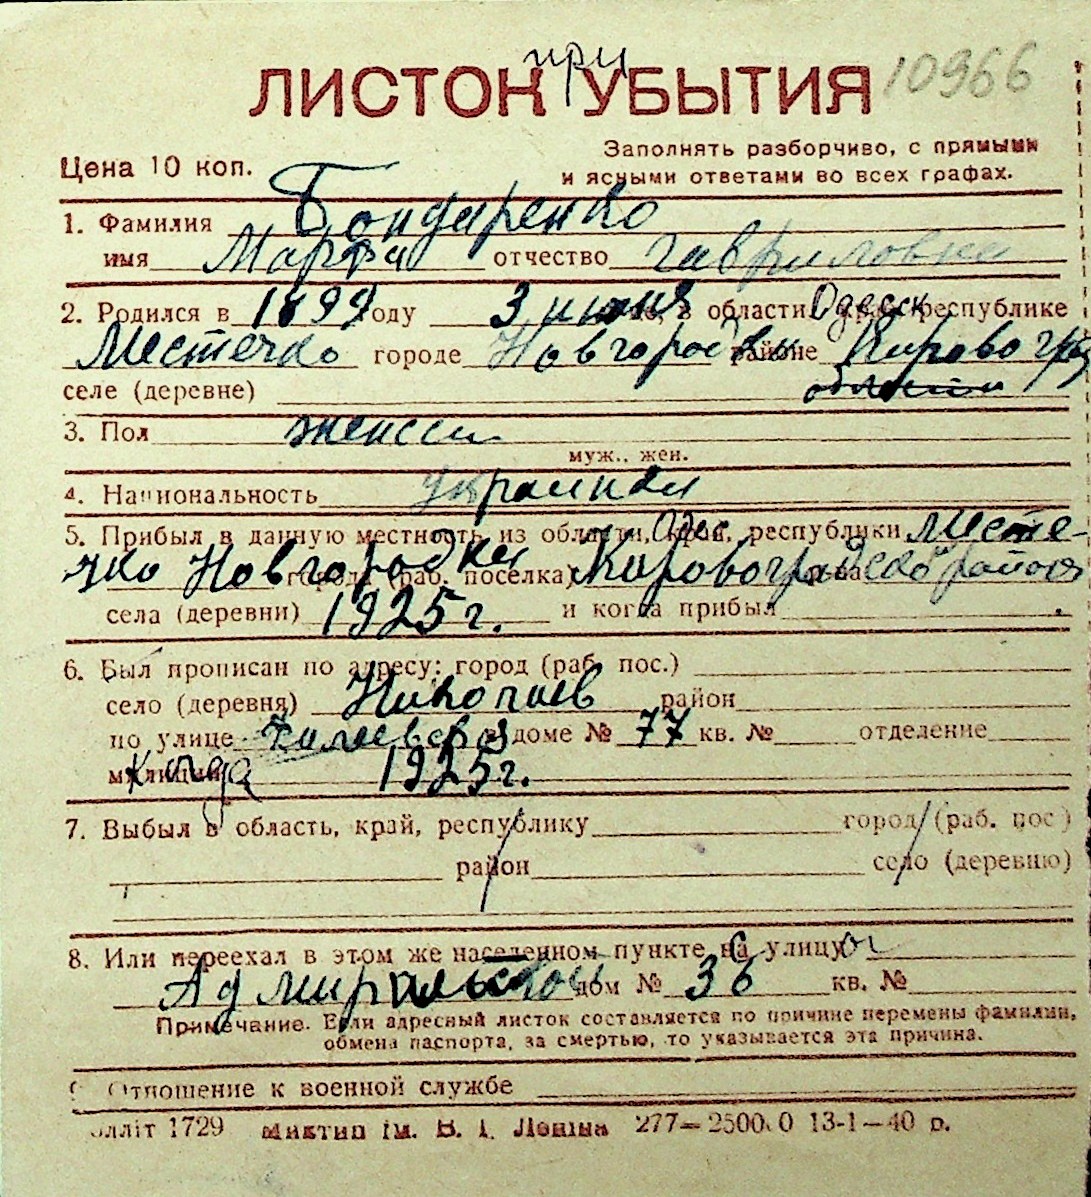 при
ЛИСТОК УБЫТИЯ 10966
Заполнять разборчиво, с прямыми
Цена 10 коп. и ясными ответами во всех графах.
1. Фамилия Бондаренко
имя Марфа отчество Гавриловна
2. Родился в 1899 году 3 июня в области Одесск республике
Местечко городе Новгородки районе Кировогр
селе (деревне) области
3. Пол женск
муж., жен.
4. Национальность украинка
5. Прибыл в данную местность из области, Одес. республики Месте-
чко Новгородки города (раб. поселка) Кировоградского района
села (деревни) 1925 г. и когда прибыл
6. Был прописан по адресу: город (раб. пос.)
село (деревня) Николаев район
по улице в доме № 77 кв. № отделение
милиции когда 1925 г.
7. Выбыл в область, край, республику город (раб. пос.)
район село (деревню)
8. Или переехал в этом же населенном пункте на с улицу ой
Адмиральской дом № 36 кв. №
Примечание. Если адресный листок составляется по причине перемены фамилии,
обмена паспорта, за смертью, то указывается эта причина.
Отношение к военной службе
1729 ім. В. І. Леніна 277—2500.0 13-1—40 р.